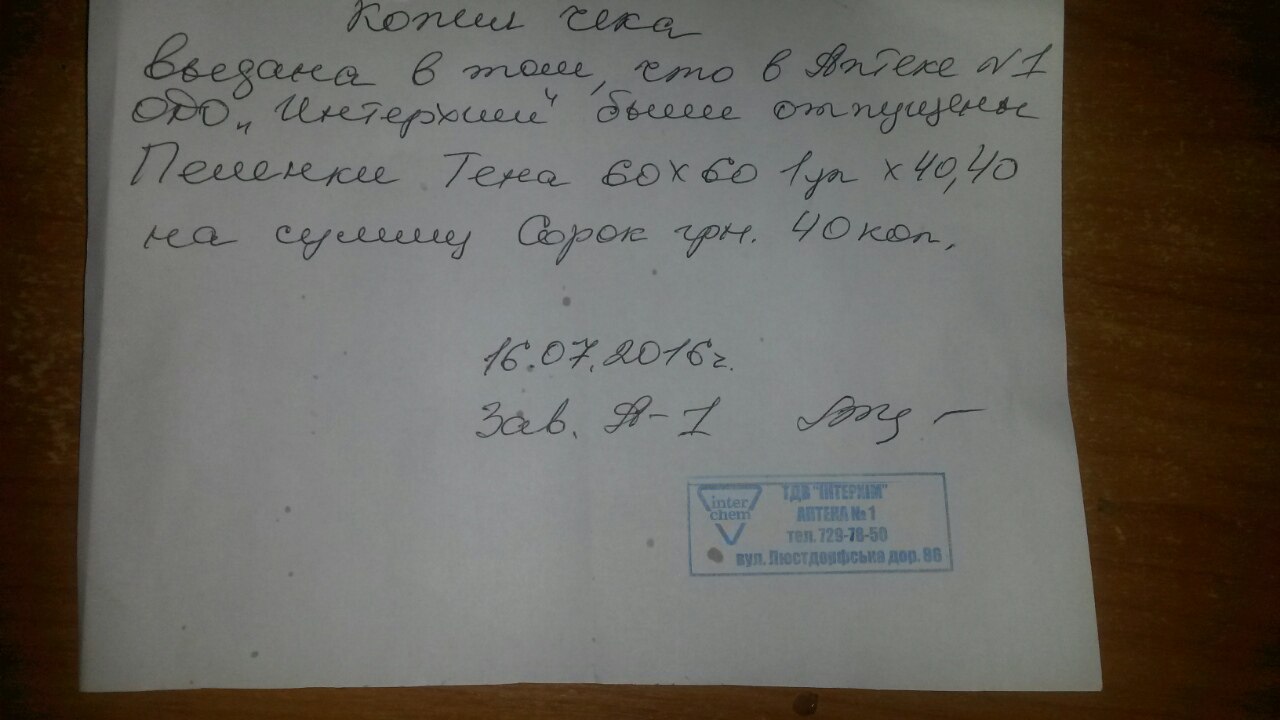 Копия чека
Выдана в том, что в Аптеке №1
ОДО „Интерхим" были отпущены
Пеленки Тена 60х60 1уп х40,40
на сумму Сорок грн. 40 коп.
16.07.2016г.
Зав. А-1
inter
chem
ТДВ "ІНТЕРХІМ"
АПТЕКА № 1
тел. 729-78-50
вул. Люстдорфська дор. 86